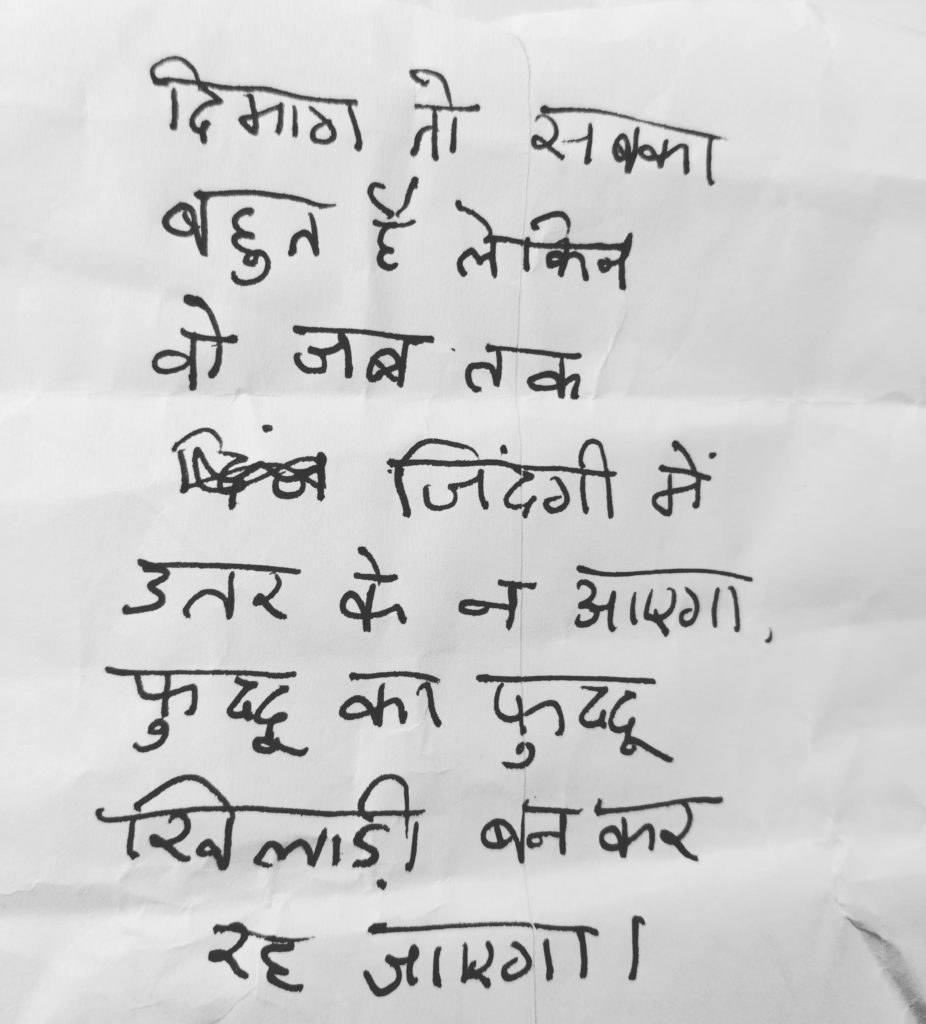 दिमाग तो सबका
बहुत है लेकिन
वो जब तक
जिंदगी में
उतर के न आएगा,
फुद्दू का फुद्दू
खिलाड़ी बन कर
रह जाएगा।